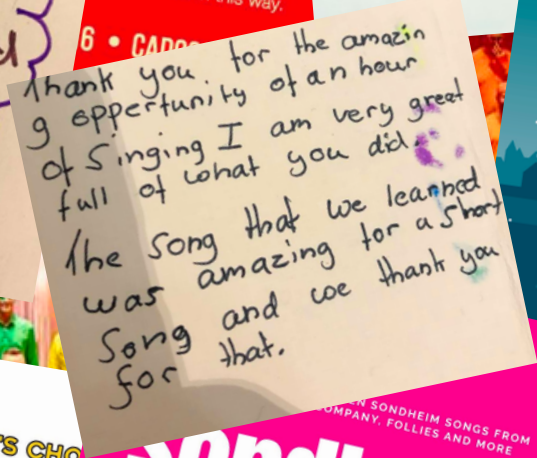 this way.
6 • CAPO
Thank you for the amazin
g oppertunity of an hour
of Singing I am very great
full of what you did.
The song that we learned
was amazing for a short
Song and we thank you
for that.
'S CHO
EN SONDHEIM SONGS FROM
OMPANY, FOLLIES AND MORE
Sondh